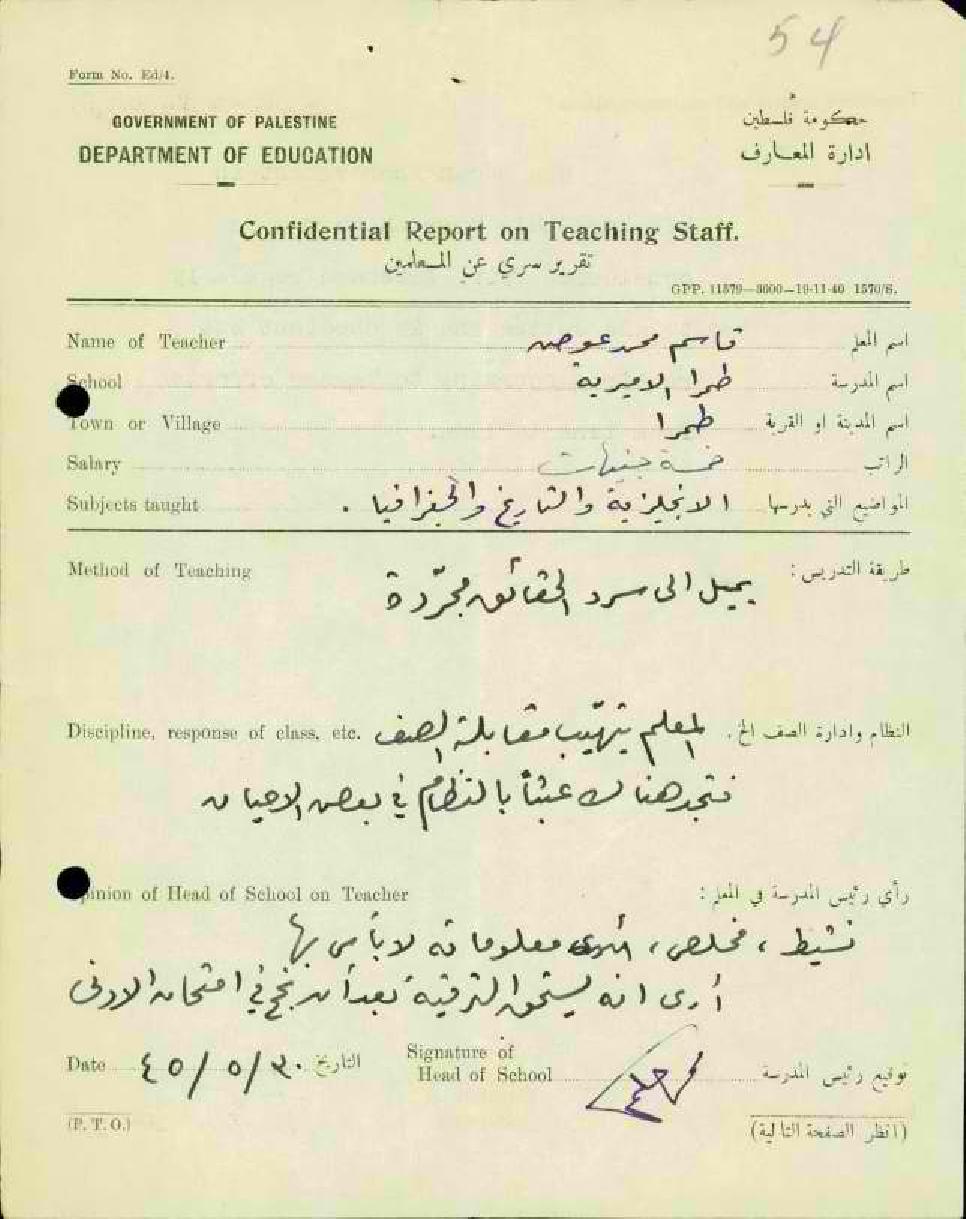 54
Form No. Ed/4.
GOVERNMENT OF PALESTINE
حكومة فلسطين
DEPARTMENT OF EDUCATION
ادارة المعارف
Confidential Report on Teaching Staff.
تقرير سري عن المعلمين
GPP. 11579—3000—19-11-40 1570/S.
Name of Teacher قاسم محمد عوض اسم المعلم
School طمرا الاميرية اسم المدرسة
Town or Village طمرا اسم المدينة او القرية
Salary خمسة جنيهات الراتب
Subjects taught الانجليزية والتاريخ والجغرافيا . المواضيع التي يدرسها
Method of Teaching طريقة التدريس :
يميل الى سرد الحقائق مجرّدة
Discipline, response of class, etc. المعلم يتهيّب مقابلة الصف النظام وادارة الصف الخ .
فتجد هناك عبثاً بالنظام في بعض الاحيان
pinion of Head of School on Teacher رأي رئيس المدرسة في المعلم :
نشيط ، مخلص ، معلوماته لا بأس بها
أرى انه يستحق الترقية بعد أن نجح في امتحان الادنى
Date ٤٥/٥/٣٠ التاريخ Signature of Head of School توقيع رئيس المدرسة
(P. T. O.)
(انظر الصفحة التالية)